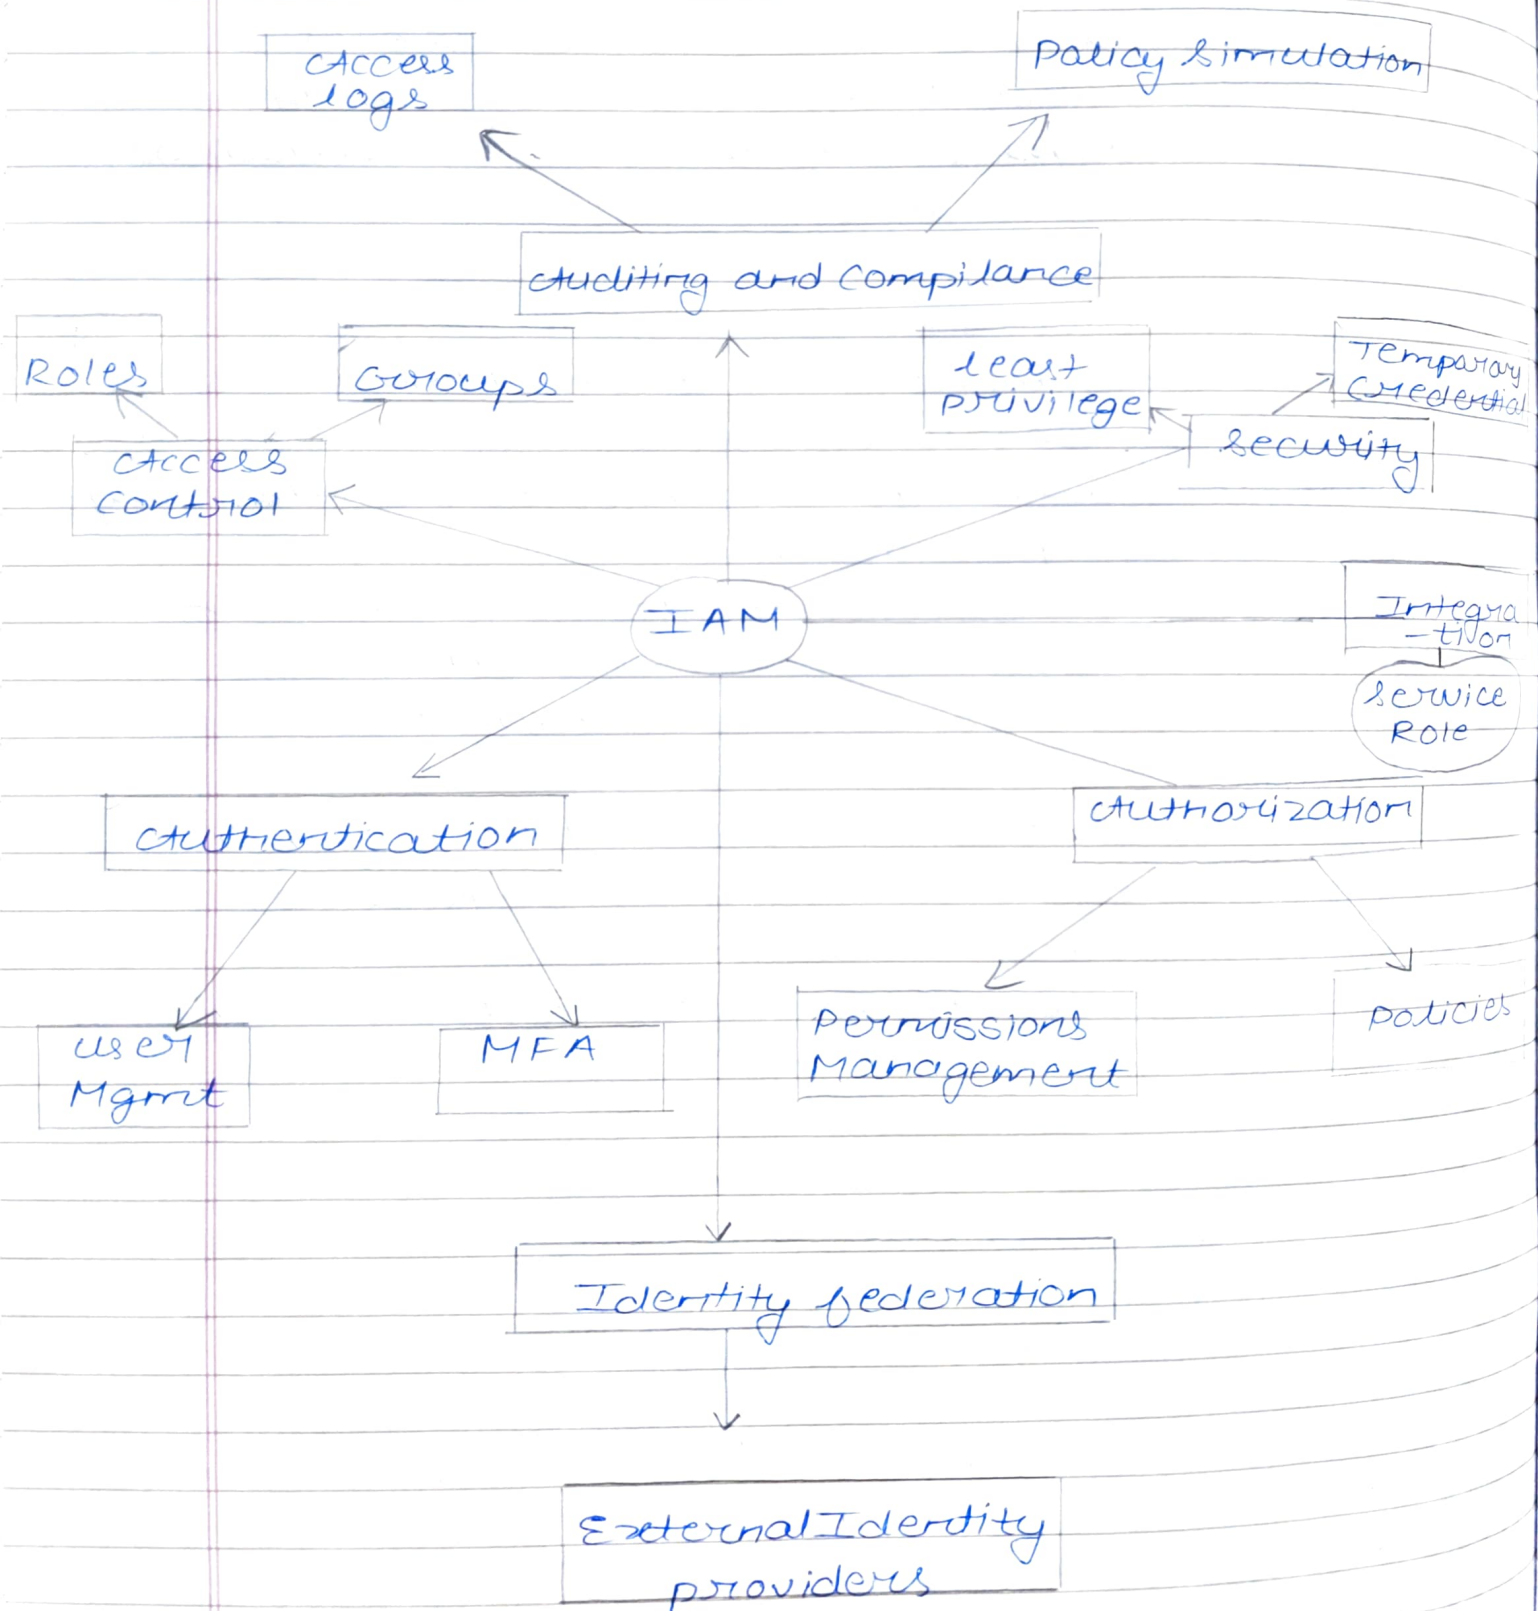 Access
logs
Policy Simulation
Auditing and Compilance
Roles
Groups
least
privilege
Temparary
Credential
Access
Control
Security
IAM
Integra
-tion
Service
Role
Authentication
Authorization
User
Mgmt
MFA
Permissions
Management
Policies
Identity federation
External Identity
providers